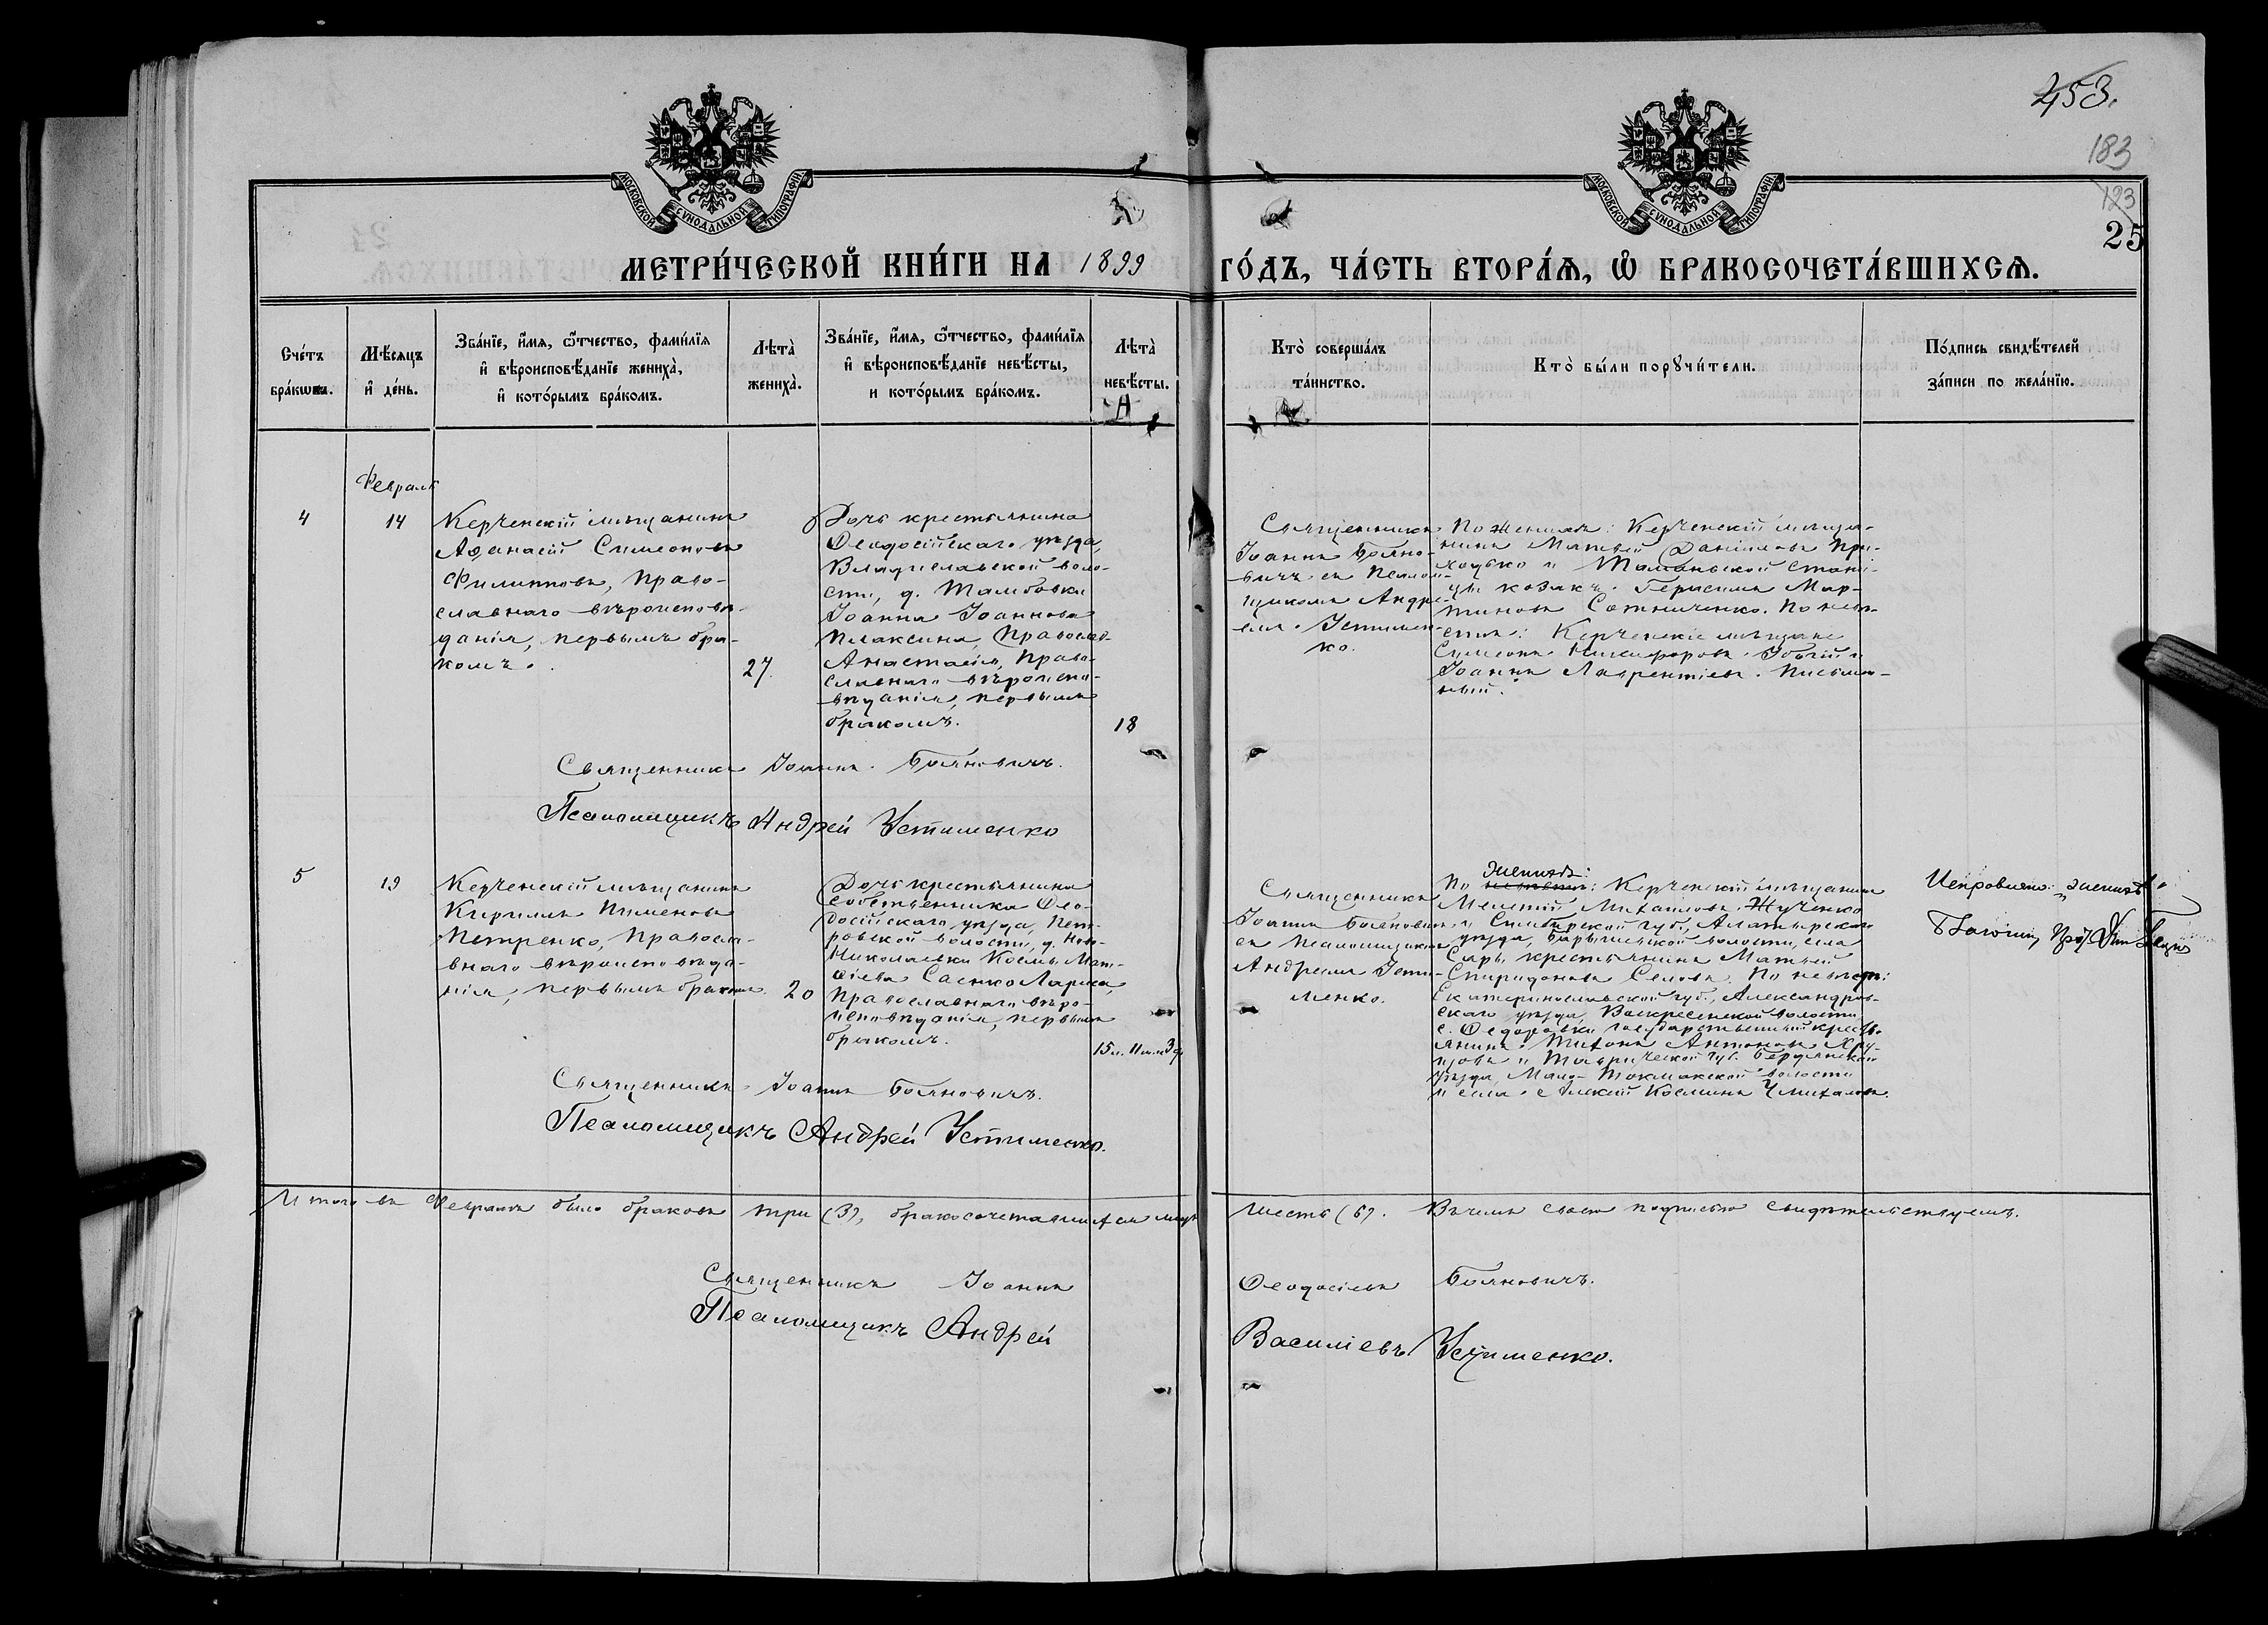 253.
183
123
25
МОСКОВСКОЙ СѴНОДАЛЬНОЙ ТИПОГРАФІИ
МОСКОВСКОЙ СѴНОДАЛЬНОЙ ТИПОГРАФІИ
МЕТРИ́ЧЕСКОЙ КНИ́ГИ НА 1899 ГО́ДЪ, ЧА́СТЬ ВТОРА́Ѧ, Ѽ БРАКОСОЧЕТА́ВШИХСѦ.
Сче́тъ
бра́кѡвъ.
Мѣ́сяцъ
и҆ де́нь.
Зва́нїе, и҆́мя, ѻ҆́тчество, фами́лїя
и҆ вѣроисповѣ́данїе жениха̀,
и҆ кото́рымъ бра́комъ.
Лѣта̀
жениха̀.
Зва́нїе, и҆́мя, ѻ҆́тчество, фами́лїя
и҆ вѣроисповѣ́данїе невѣ́сты,
и кото́рымъ бра́комъ.
Лѣта̀
невѣ́сты.
Кто̀ соверша́лъ
та́инство.
Кто̀ бы́ли порꙋчи́тели.
По́дпись свидѣ́телей
за́писи по жела́нїю.
Февраль
4
14
Керченскій мѣщанинъ
Аѳанасій Симеоновъ
Филипповъ, право-
славнаго вѣроисповѣ-
данія, первымъ бра-
комъ.
27.
Дочь крестьянина
Ѳеодосійскаго уѣзда,
Владиславской воло-
сти, д. Тамбовки
Іоанна Іоаннова
Плаксина, Православ-
Анастасія, право-
славнаго вѣроиспо-
вѣданія, первымъ
бракомъ.
18
Священникъ
Іоаннъ Бояно-
вичъ съ псалом-
щикомъ Андре-
емъ Устимен-
ко.
По женихѣ: Керченскій мѣща-
нинъ Матвѣй Даніиловъ При-
ходько и Таманьской стани-
цы козакъ Герасимъ Мар-
тиновъ Сотниченко. По невѣ-
стѣ: Керченскіе мѣщане
Симеонъ Никифоровъ и
Іоаннъ Лаврентіевъ Письмен-
ный.
Священникъ Іоаннъ Бояновичъ.
Псаломщикъ Андрей Устименко
5
19
Керченскій мѣщанинъ
Кириллъ Пименовъ
Петренко, Правосла-
внаго вѣроисповѣда-
нія, первымъ бракомъ.
20
Дочь крестьянина
собственника Ѳео-
досійскаго уѣзда, Пет-
ровской волости, д. Ново-
Николаевки Космы Мат-
ѳіева Саенко Лариса,
православнаго вѣро-
исповѣданія, первымъ
бракомъ.
15 л. 11 м. и 3 д.
Священникъ
Іоаннъ Бояновичъ
съ псаломщикомъ
Андреемъ Усти-
менко.
женихѣ:
По невѣстѣ: Керченскій мѣщанинъ
Мелетій Михаиловъ Жученко
и Симбирской губ., Алатырскаго
уѣзда, Барышской волости, села
Сары крестьянинъ Матвѣй
Спиридоновъ Семовъ. По невѣстѣ:
Екатеринославской губ., Александров-
скаго уѣзда, Воскресенской волости,
с. Ѳедоровки государственный кресть-
янинъ Тихонъ Антоновъ
и Таврической губ. Бердянскаго
уѣзда, Мало-Токмакской волости
и села Алексій Косминъ
Исправлено: „женихѣ“.
Священникъ Іоаннъ Бояновичъ.
Псаломщикъ Андрей Устименко.
Итого въ Февралѣ было браковъ три (3), бракосочетавшихся лицъ шесть (6). Въ чемъ своею подписью свидѣтельствуемъ.
Священникъ Іоаннъ Ѳеодосіевъ Бояновичъ.
Псаломщикъ Андрей Василіевъ Устименко.